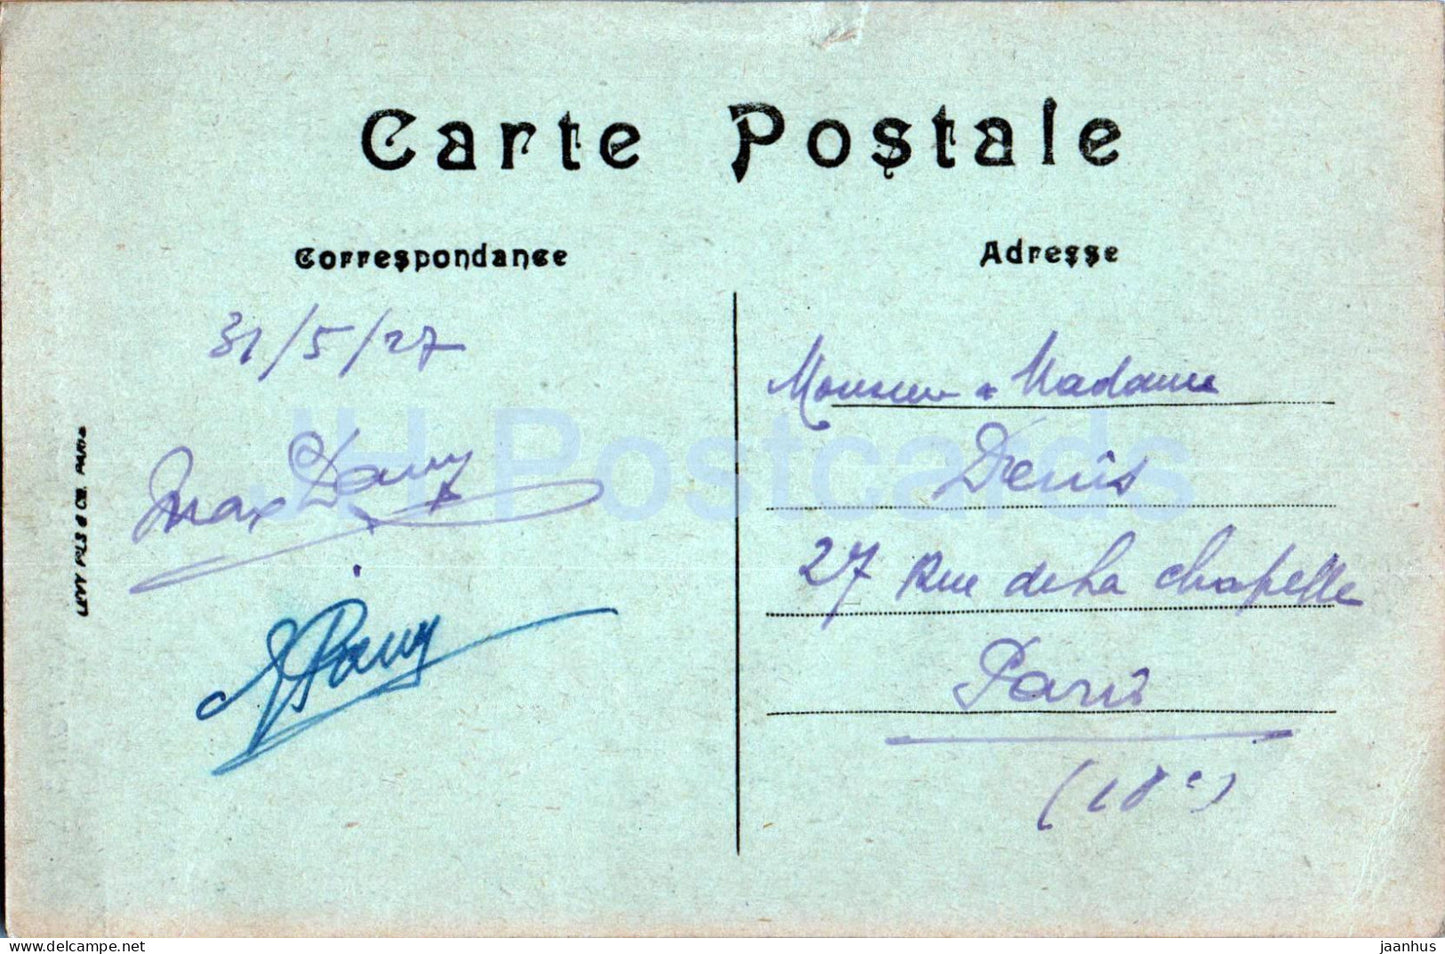 Carte Postale
Correspondance
Adresse
31/5/27
Max
Monsieur & Madame
Denis
27 Rue de la Chapelle
Paris
(18e)
LEVY FILS & CIE. PARIS
JH Postcards
www.delcampe.net
jaanhus